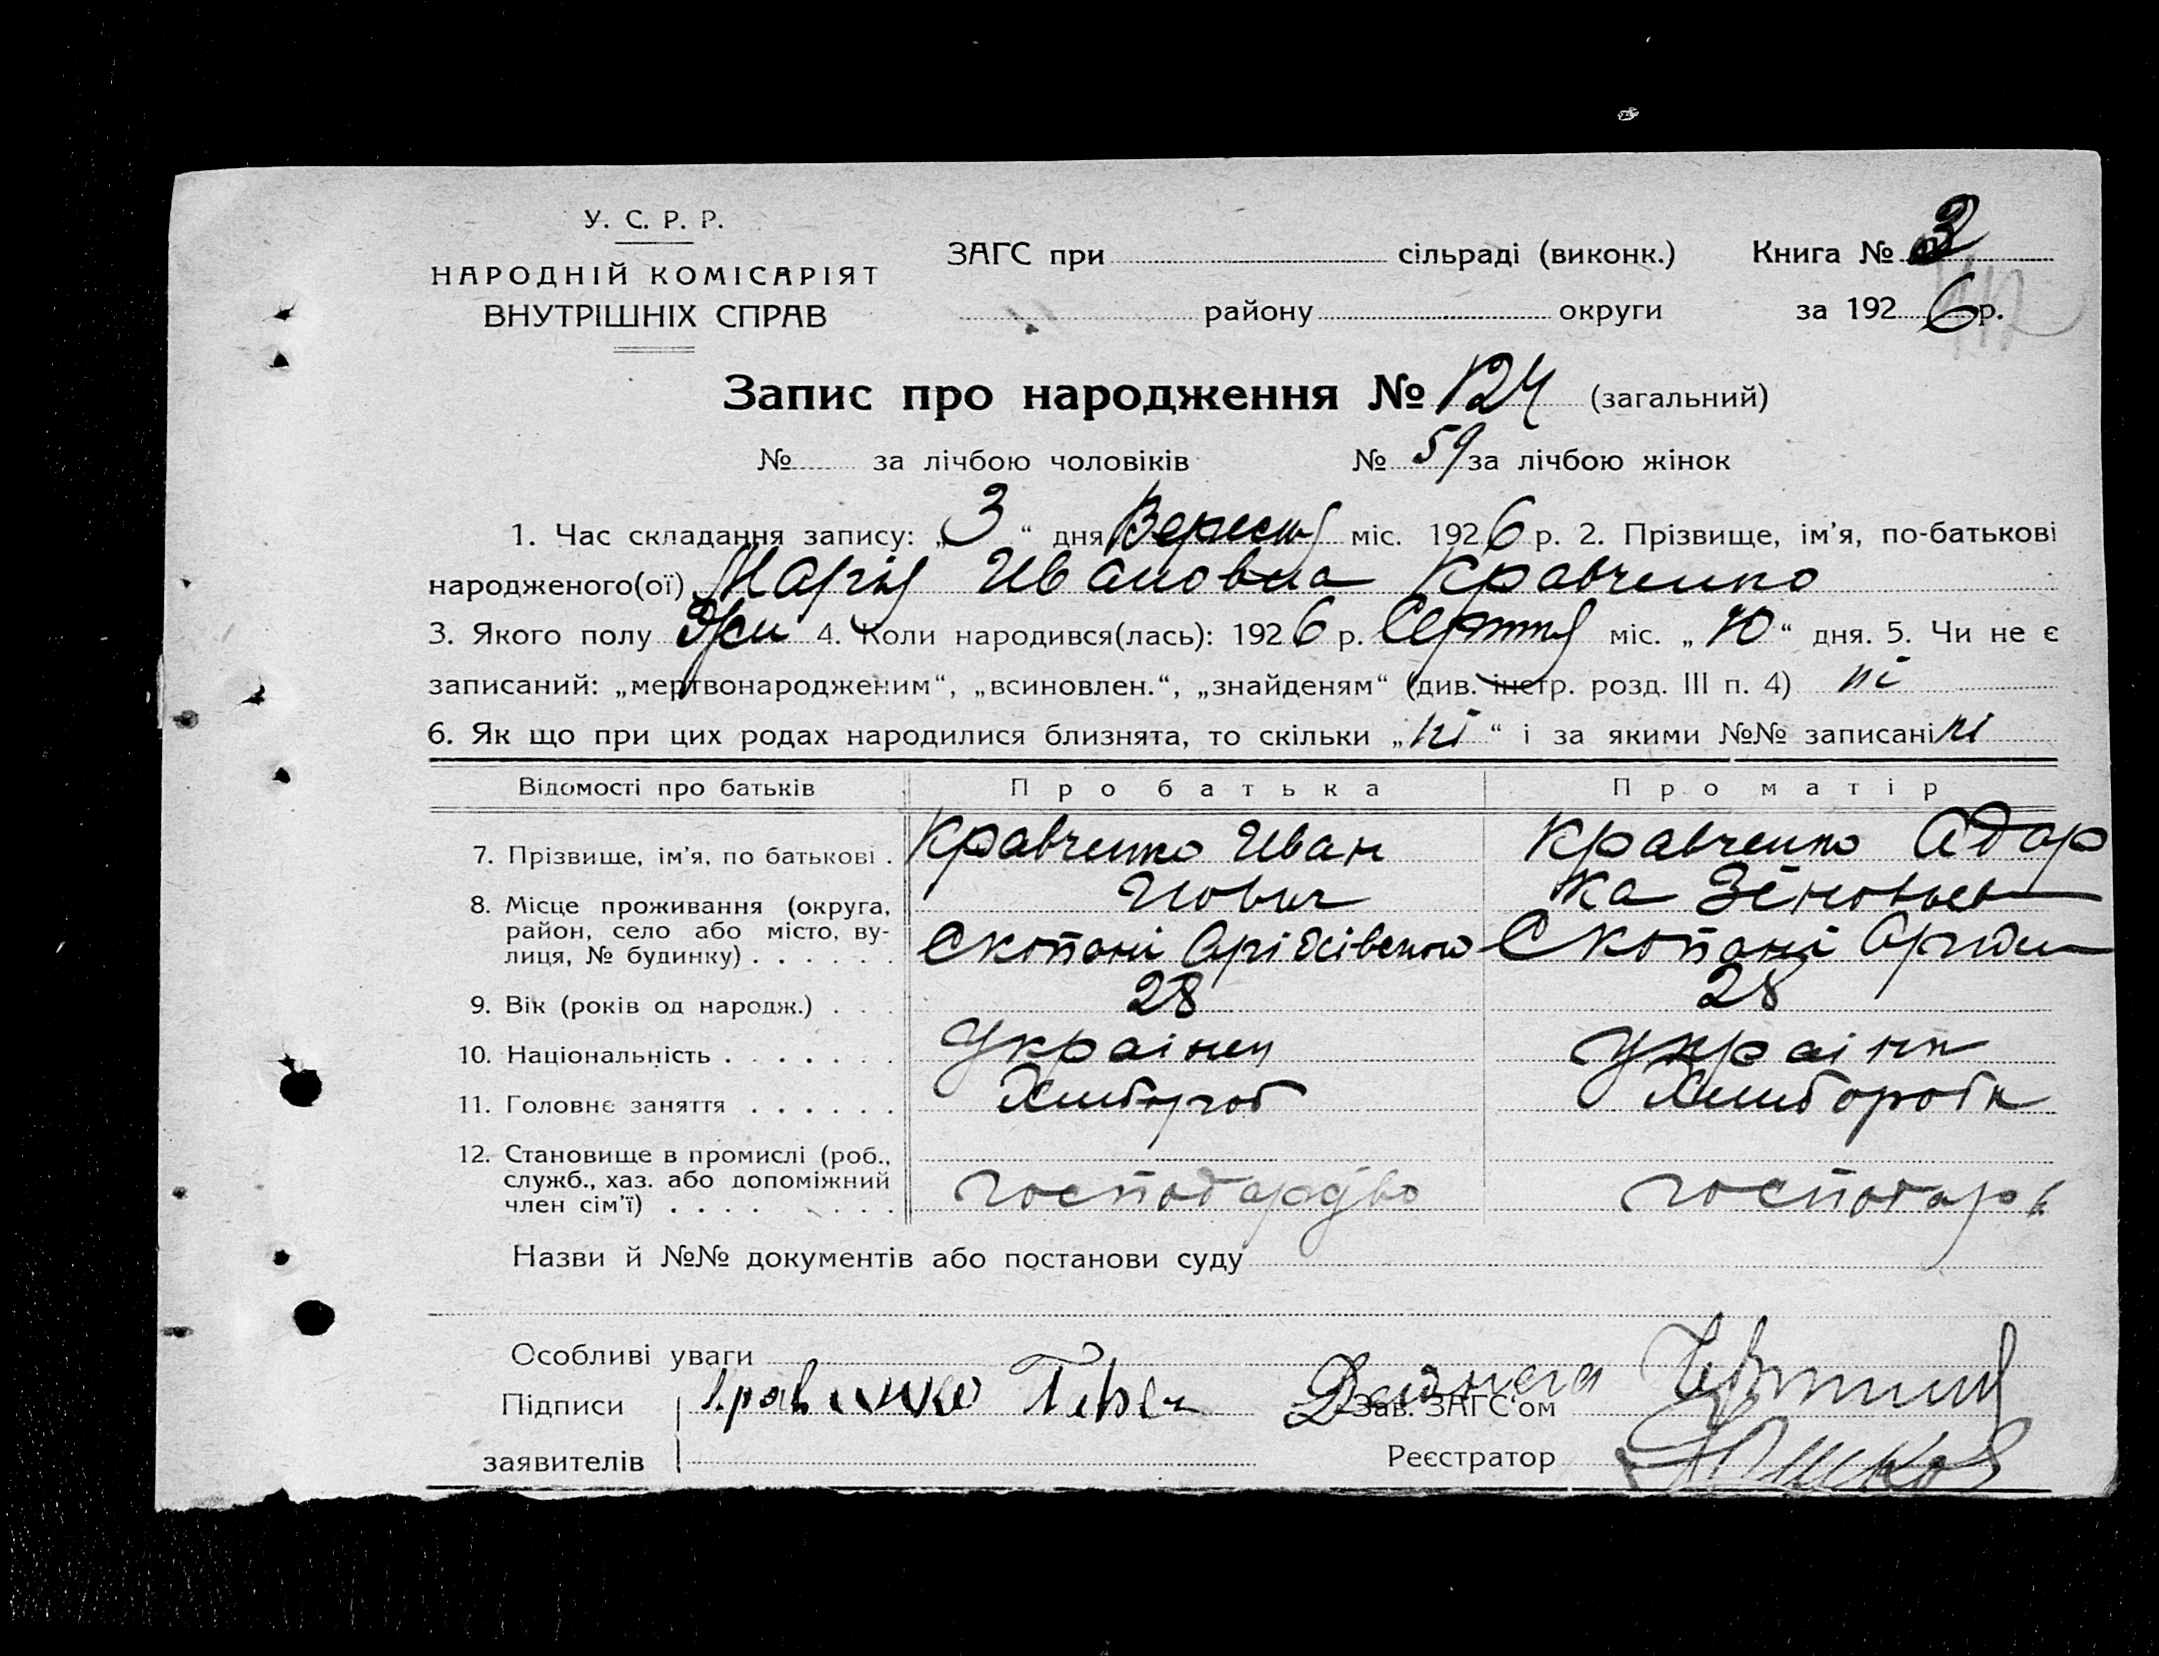 У. С. Р. Р.
НАРОДНІЙ КОМІСАРІЯТ
ВНУТРІШНІХ СПРАВ
ЗАГС при сільраді (виконк.) Книга № 3
району округи за 1926 р.
Запис про народження № 124 (загальний)
№ за лічбою чоловіків № 59 за лічбою жінок
1. Час складання запису: „3“ дня Вересня міс. 1926 р. 2. Прізвище, ім'я, по-батькові
народженого(ої) Марія Ивановна Кравченко
3. Якого полу Жи 4. Коли народився(лась): 1926 р. Серпня міс. „10“ дня. 5. Чи не є
записаний: „мертвонародженим“, „всиновлен.“, „знайденям“ (див. інстр. розд. III п. 4) ні
6. Як що при цих родах народилися близнята, то скільки „ні“ і за якими №№ записані ні
Відомості про батьків Про батька Про матір
7. Прізвище, ім'я, по батькові . Кравченко Иван Кравченко Одар
8. Місце проживання (округа, район, село або місто, вулиця, № будинку) . . . . . . Иович ка Зіновьев
Скопані Скопані
9. Вік (років од народж.) . . . 28 28
10. Національність . . . . . . . Украінец украінк
11. Головнє заняття . . . . . . Хлибороб Хлиборобк
12. Становище в промислі (роб., служб., хаз. або допоміжний член сім'ї) . . . . . . . . господарство господарк
Назви й №№ документів або постанови суду
Особливі уваги
Підписи Кравченко Зав. ЗАГС'ом
заявителів Реєстратор